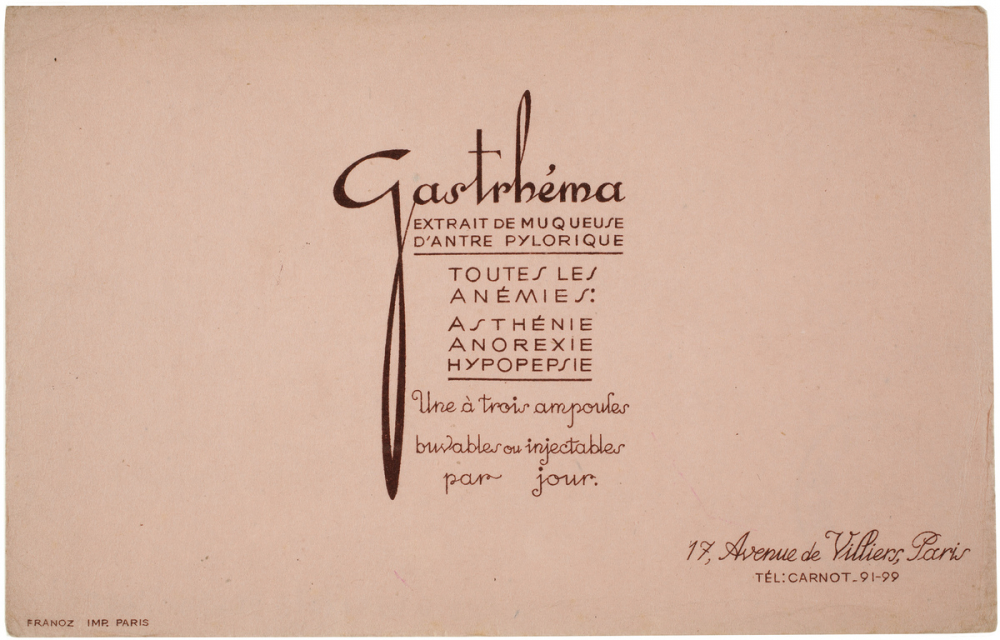 Gastrhéma
EXTRAIT DE MUQUEUSE
D'ANTRE PYLORIQUE
TOUTES LES
ANÉMIES:
ASTHÉNIE
ANOREXIE
HYPOPEPSIE
Une à trois ampoules
buvables ou injectables
par jour.
17, Avenue de Villiers, Paris
TÉL: CARNOT_91-99
FRANOZ IMP. PARIS